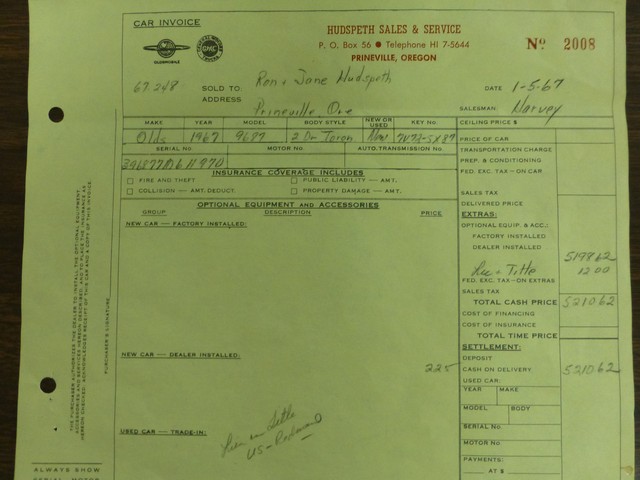 CAR INVOICE
HUDSPETH SALES & SERVICE
P. O. Box 56 ● Telephone HI 7-5644
PRINEVILLE, OREGON
No 2008
OLDSMOBILE
GMC
67-248
SOLD TO Ron & Jane Hudspeth
DATE 1-5-67
ADDRESS Prineville, Ore
SALESMAN: Harvey
MAKE YEAR MODEL BODY STYLE NEW OR USED KEY No. CEILING PRICE $
Olds 1967 9687 2 Dr Toron New
PRICE OF CAR
SERIAL No. MOTOR No. AUTO. TRANSMISSION No.
TRANSPORTATION CHARGE
PREP. & CONDITIONING
INSURANCE COVERAGE INCLUDES
FED. EXC. TAX—ON CAR
FIRE AND THEFT PUBLIC LIABILITY — AMT.
COLLISION — AMT. DEDUCT. PROPERTY DAMAGE — AMT.
SALES TAX
DELIVERED PRICE
OPTIONAL EQUIPMENT AND ACCESSORIES
GROUP DESCRIPTION PRICE
EXTRAS:
NEW CAR — FACTORY INSTALLED:
OPTIONAL EQUIP. & ACC.:
FACTORY INSTALLED
DEALER INSTALLED
5198 62
Lic & Title 12 00
FED. EXC. TAX—ON EXTRAS
SALES TAX
TOTAL CASH PRICE 5210.62
COST OF FINANCING
COST OF INSURANCE
TOTAL TIME PRICE
SETTLEMENT:
NEW CAR — DEALER INSTALLED:
DEPOSIT
225
CASH ON DELIVERY 5210.62
USED CAR:
YEAR MAKE
MODEL BODY
USED CAR — TRADE-IN:
Lien on Title
US-Redmond
SERIAL No.
MOTOR No.
PAYMENTS:
AT $
THE PURCHASER AUTHORIZES THE DEALER TO INSTALL THE OPTIONAL EQUIPMENT
PURCHASER'S SIGNATURE
ALWAYS SHOW
SERIAL MOTOR